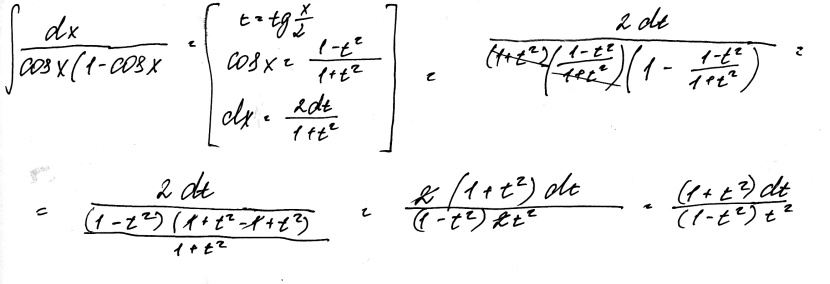 ∫ dx / (cos x (1 - cos x) = [ t = tg x/2
cos x = (1 - t²) / (1 + t²)
dx = 2dt / (1 + t²) ] = 2 dt / ((1+t²) ((1-t²)/(1+t²)) (1 - (1-t²)/(1+t²))) =
= 2 dt / ((1-t²)(1+t²-1+t²) / (1+t²)) = 2 (1+t²) dt / ((1-t²) 2t²) = (1+t²) dt / ((1-t²) t²)